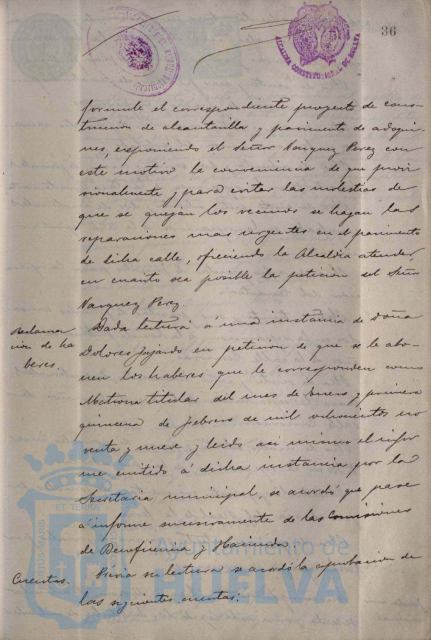 36
ALCALDIA CONSTITUCIONAL DE HUELVA
formule el correspondiente proyecto de cons-
trucción de alcantarilla y pavimento de adoqui-
nes, exponiendo el Señor Vazquez Perez con
este motivo la conveniencia de que provi-
sionalmente y para evitar las molestias de
que se quejan los vecinos se hagan las
reparaciones mas urgentes en el pavimento
de dicha calle, ofreciendo la Alcaldia atender
en cuanto sea posible la petición del Señor
Vazquez Perez.
Reclama-
cion de ha-
beres.
Dada lectura á una instancia de doña
Dolores Fajardo en petición de que se le abo-
nen los haberes que le corresponden como
Matrona titular del mes de Enero y primera
quincena de febrero de mil ochocientos no-
venta y nueve y leido asi mismo el infor-
me emitido á dicha instancia por la
Secretaria municipal, se acordó que pase
á informe sucesivamente de las Comisiones
de Beneficencia y Hacienda.
Cuentas.
Prévia su lectura se acordó la aprobacion de
las siguientes cuentas:
Ayuntamiento de
HUELVA